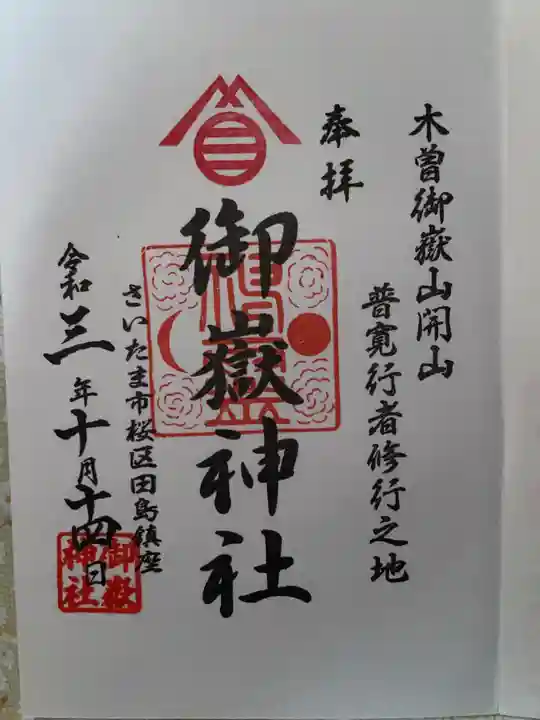 木曽御嶽山開山
普寛行者修行之地
奉拝
御嶽神社
さいたま市桜区田島鎮座
令和三年十月十四日
御嶽神社